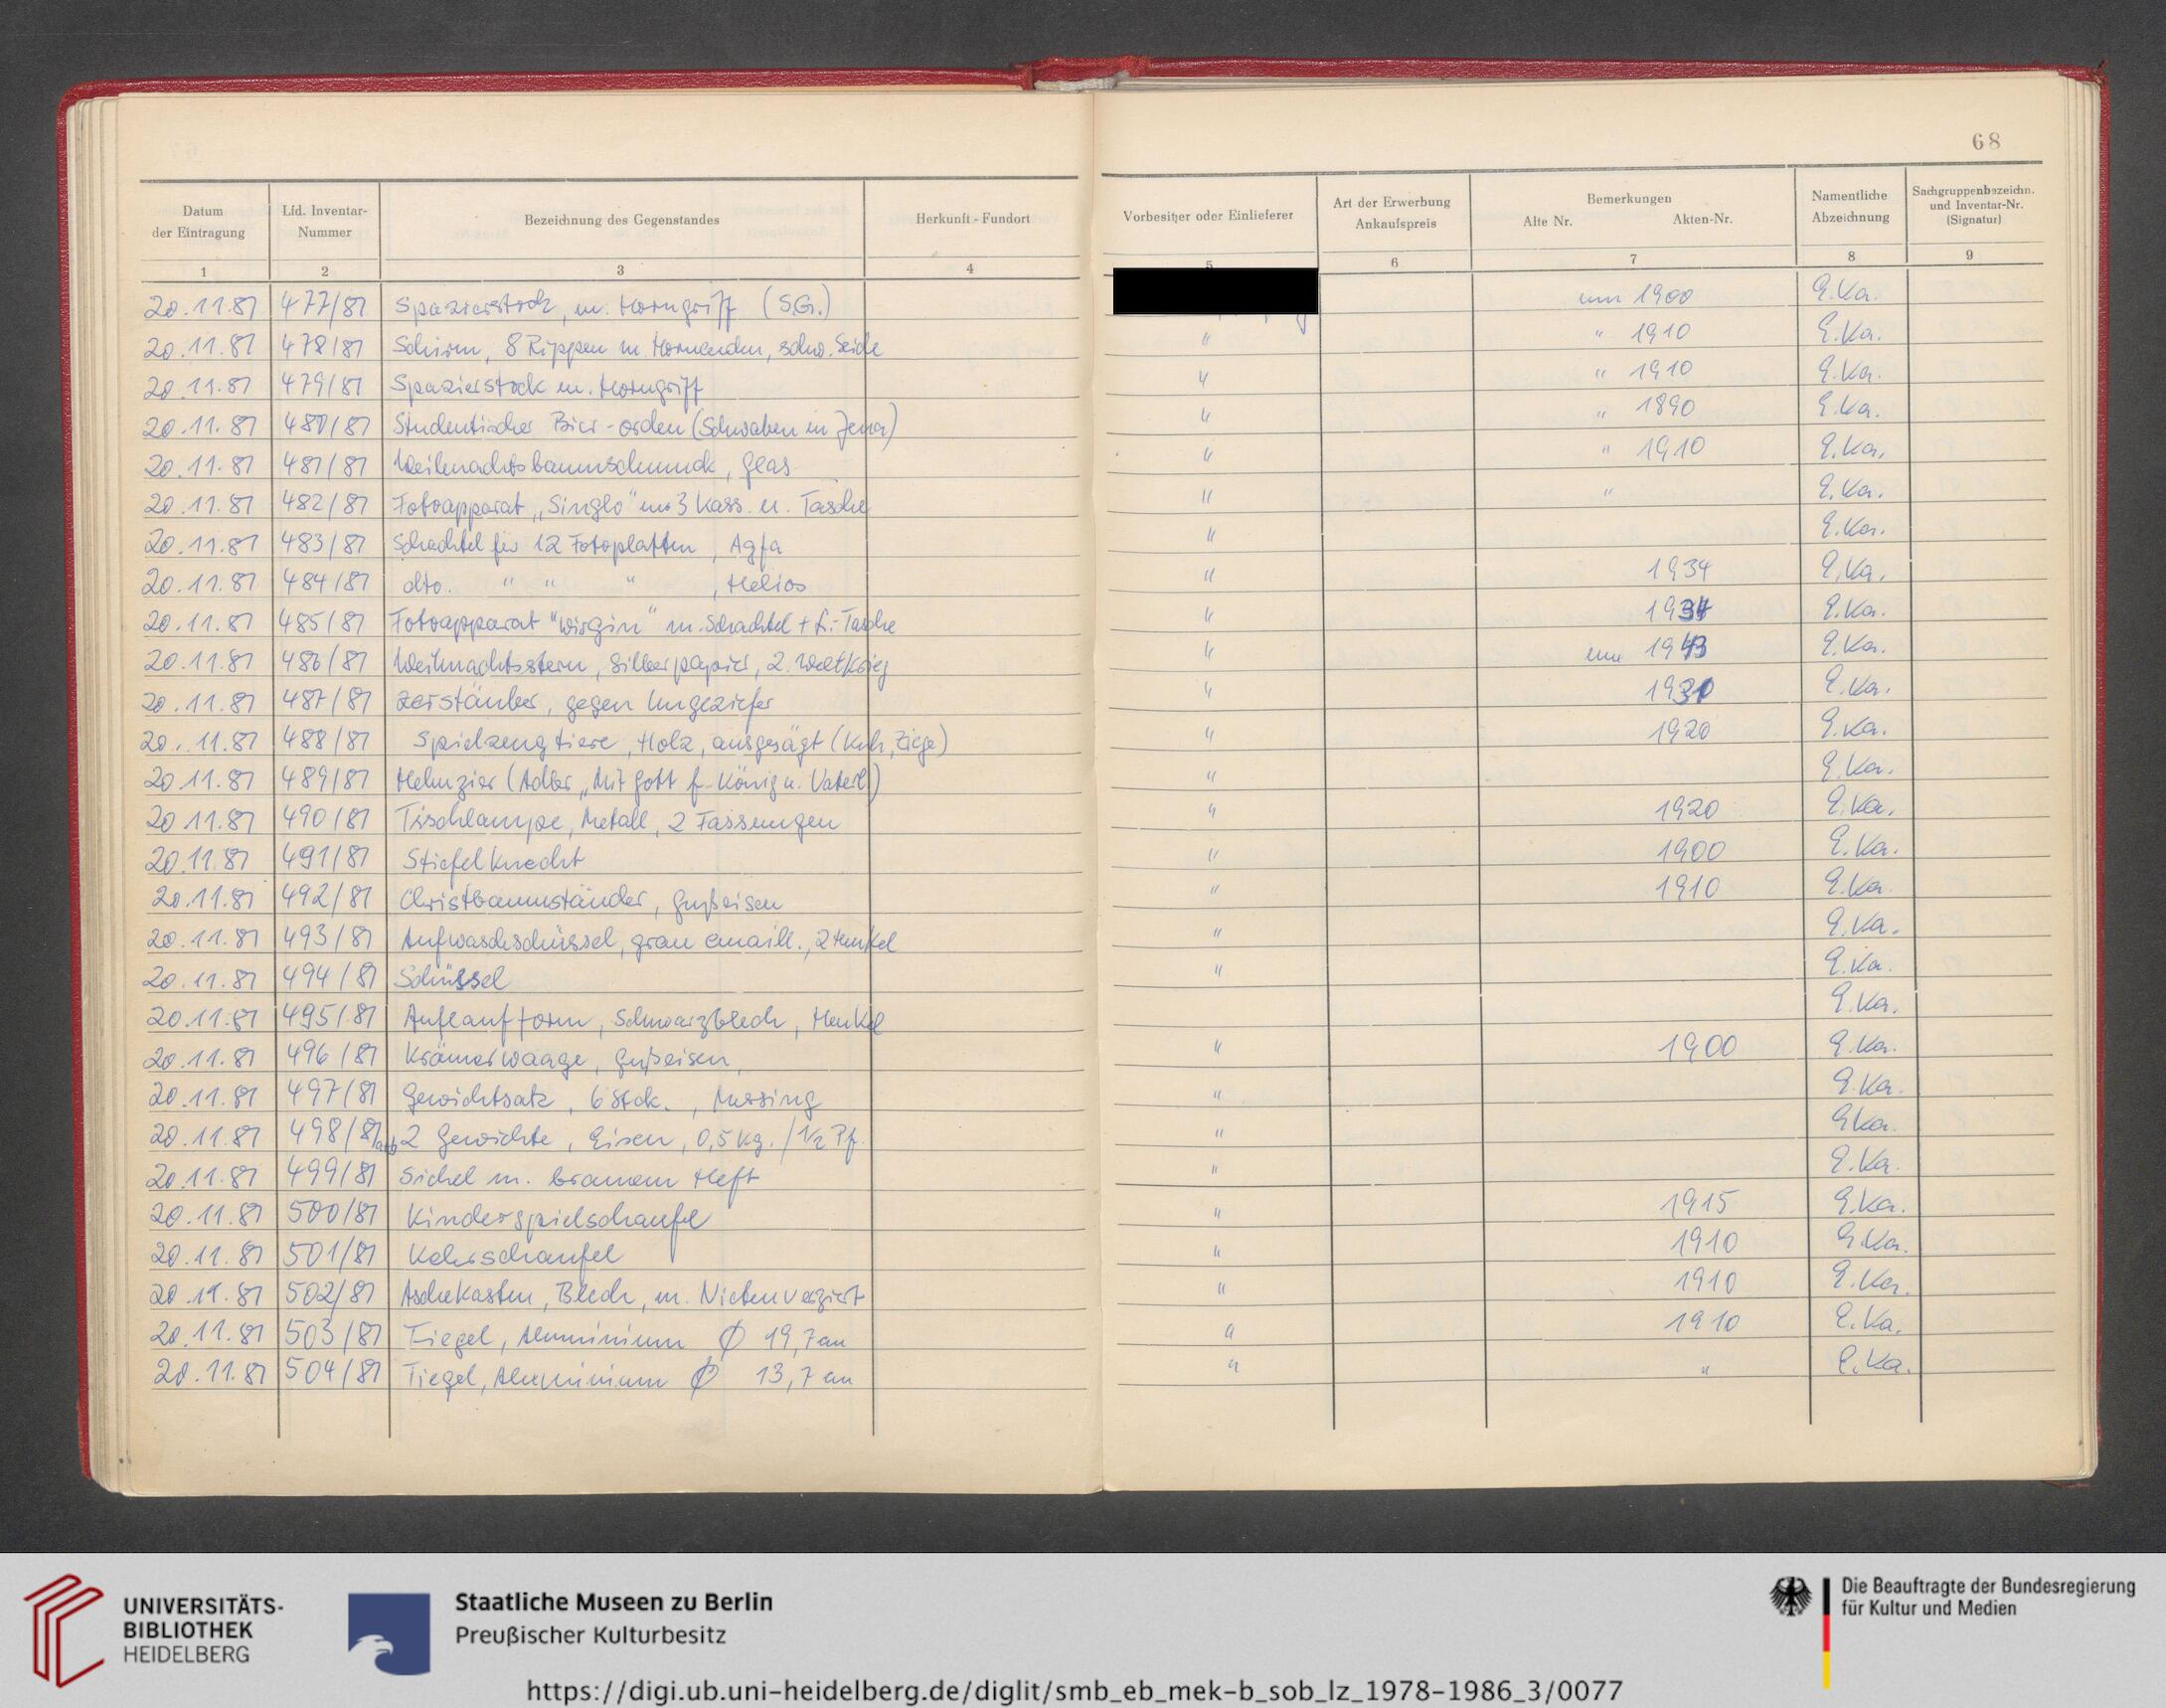 68
Datum der Eintragung | Lfd. Inventar-Nummer | Bezeichnung des Gegenstandes | Herkunft - Fundort | Vorbesitzer oder Einlieferer | Art der Erwerbung Ankaufspreis | Bemerkungen Alte Nr. Akten-Nr. | Namentliche Abzeichnung | Sachgruppenbezeichn. und Inventar-Nr. (Signatur)
1 | 2 | 3 | 4 | 5 | 6 | 7 | 8 | 9
20.11.81 | 477/81 | Spazierstock, m. Horngriff (S.G.) | um 1900 | E.Ka.
20.11.81 | 478/81 | Schirm, 8 Rippen m. Hornenden, schw. Seide | " | " 1910 | E.Ka.
20.11.81 | 479/81 | Spazierstock m. Horngriff | " | " 1910 | E.Ka.
20.11.81 | 480/81 | Studentischer Bier-orden (Schwaben in Jena) | " | " 1890 | E.Ka.
20.11.81 | 481/81 | Weihnachtsbaumschmuck, Glas | " | " 1910 | E.Ka.
20.11.81 | 482/81 | Fotoapparat „Singlo" m. 3 Kass. u. Tasche | " | " | E.Ka.
20.11.81 | 483/81 | Schachtel für 12 Fotoplatten, Agfa | " | E.Ka.
20.11.81 | 484/81 | dto. " " " , Helios | " | 1934 | E.Ka.
20.11.81 | 485/81 | Fotoapparat "Wirgin" m. Schachtel + L.-Tasche | " | 1934 | E.Ka.
20.11.81 | 486/81 | Weihnachtsstern, Silberpapier, 2. Weltkrieg | " | um 1943 | E.Ka.
20.11.81 | 487/81 | Zerstäuber, gegen Ungeziefer | " | E.Ka.
20.11.81 | 488/81 | Spielzeugtiere, Holz, ausgesägt (Kuh, Ziege) | " | 1920 | E.Ka.
20.11.81 | 489/81 | Helmzier (Adler „Mit Gott f. König u. Vaterl) | " | E.Ka.
20.11.81 | 490/81 | Tischlampe, Metall, 2 Fassungen | " | 1920 | E.Ka.
20.11.81 | 491/81 | Stiefelknecht | " | 1900 | E.Ka.
20.11.81 | 492/81 | Christbaumständer, Gußeisen | " | 1910 | E.Ka.
20.11.81 | 493/81 | Aufwaschschüssel, grau emaill., 2 Henkel | " | E.Ka.
20.11.81 | 494/81 | Schüssel | " | E.Ka.
20.11.81 | 495/81 | Auflaufform, Schwarzblech, Henkel | E.Ka.
20.11.81 | 496/81 | Krämerwaage, Gußeisen, | " | 1900 | E.Ka.
20.11.81 | 497/81 | Gewichtsatz, 6 Stck., Messing | " | E.Ka.
20.11.81 | 498/81 a+b | 2 Gewichte, Eisen, 0,5 kg. / 1/2 Pf. | " | E.Ka.
20.11.81 | 499/81 | Sichel m. braunem Heft | " | E.Ka.
20.11.81 | 500/81 | Kinderspielschaufel | " | 1915 | E.Ka.
20.11.81 | 501/81 | Kehrschaufel | " | 1910 | E.Ka.
20.11.81 | 502/81 | Aschekasten, Blech, m. Nieten verziert | " | 1910 | E.Ka.
20.11.81 | 503/81 | Tiegel, Aluminium Ø 19,7 cm | " | 1910 | E.Ka.
20.11.81 | 504/81 | Tiegel, Aluminium Ø 13,7 cm | " | " | E.Ka.
UNIVERSITÄTS-
BIBLIOTHEK
HEIDELBERG
Staatliche Museen zu Berlin
Preußischer Kulturbesitz
Die Beauftragte der Bundesregierung
für Kultur und Medien
https://digi.ub.uni-heidelberg.de/diglit/smb_eb_mek-b_sob_lz_1978-1986_3/0077